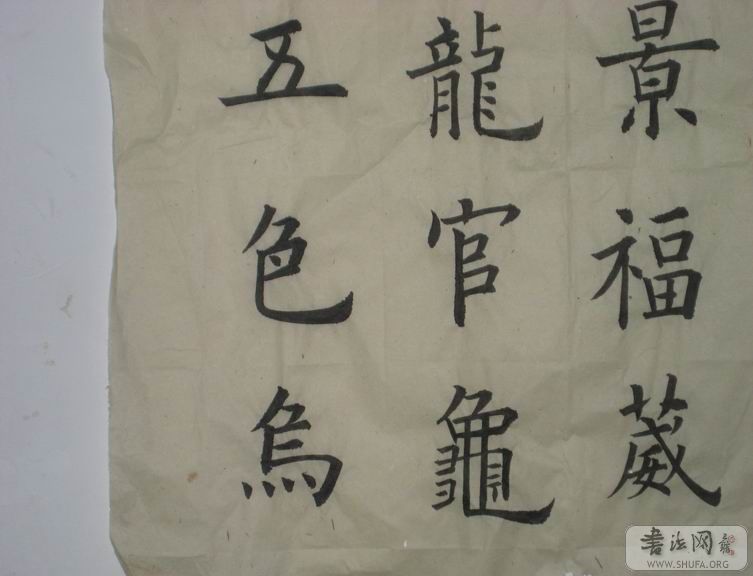 景福葳
龍官龜
五色烏
書法网
WWW.SHUFA.ORG